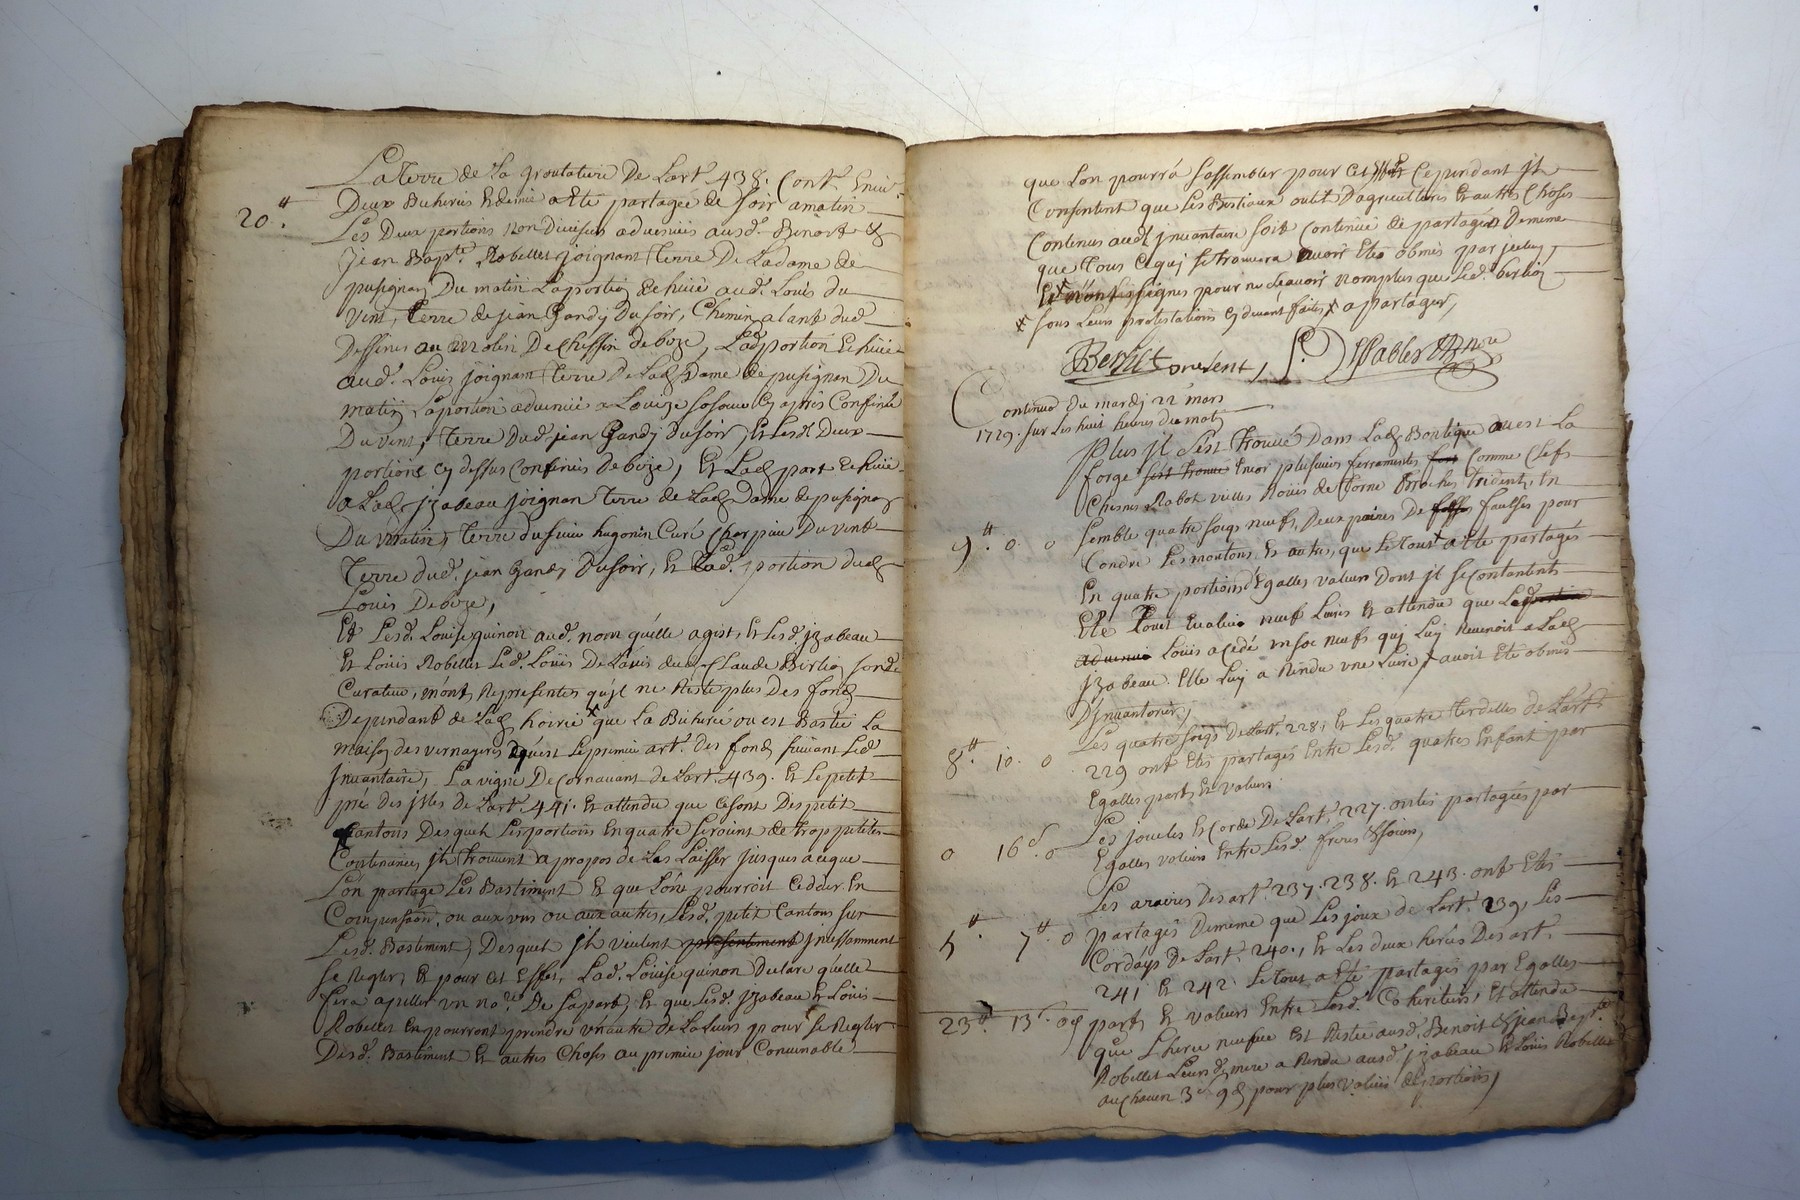 La Terre de La groulatiere De Lart. 438. Cont. Envir.
Deux Bicherées Et demie a Ete partagée de soir a matin
20.# Les Deux portions Non Divisées advenües ausd. Benoit &
Jean Bapte. Robellet joignant Terre De La dame de
pusignan Du matin La portion Echüe aud. Louis du
vent, Terre de jean Gandy Du soir, Chemin alant dud.
Dessines au Molin De Cheffin de bize, Lad. portion Echüe
aud. Louis joignant Terre De Lad. Dame de pusignan Du
matin La portion advenüe a Louize sa soeur Cy apres Confinée
Du vent, Terre dud. jean Gandy Du soir, Et Lesd. Deux
portions Cy dessus Confinées De bize, Et Lad. part Echüe
a Lad. Izabeau joignan Terre de Lad. Dame de pusignan
Du matin, Terre du sieur hugonin Curé Charpieu Du vent
Terre dud. jean Gandy Du soir, Et Lad. portion dud.
Louis De bize,
Et Lesd. Louise quinon aud. nom qu'elle agist, Et Lesd. Izabeau
Et Loüis Robellet Led. Loüis De L'avis dud. Claude Birlion son d.
Curateur, m'ont Representes qu'il ne Reste plus Des fond
Dependant de Lad. hoirie x que La Bicherée ou est Bastie La
maison des vernageres qu'est Le premier art. des fond suivant Led.
Inventaire, La vigne De Cornavant de Lart. 439. Et Le petit
pré des isles de Lart. 441. Et attendu que Ce sont Des petit
Cantons Desquels Les portions En quatre seroient de trop petites
Contenances, ils Trouvent a propos de Les Laisser jusques a ceque
L'on partage Les Bastiment Et que L'one pourroit Ceder En
Compensaon. ou aux uns ou aux autres, Lesd. petit Cantons sur
Lesd. Bastiment, Desquel ils veulent presentement incessamment
se Regler, Et pour Cet Effet, Lad. Louise quinon Declare qu'elle
fera apeller un nore. De sa part, Et que Lesd. Izabeau Et Loüis
Robellet En pourront prendre un autre De La Leurs pour se Regler
Desd. Bastiment Et autres Choses au premier jour Convenable
que L'on pourrá s'assembler pour Cet Effet Et Cependant ils
Consentent que Les Bestiaux outil D'agricultures Et autres Choses
Contenus aud. inventaire soit Continué de partager De meme
que Tous Ce qui se trouvera avoir Eté obmis par iceluy,
Et n'ont signes pour ne sçavoir Nomplus que Led. birlion
# sous Leurs protestations Cy devant faites x a partager,
Berlict present, Pablet Nre
Continuõ du mardy 22 mars
1729. sur Les huit heures du matin
Plus il s'est Trouvé Dans Lad. Boutique ou est La
forge s'est trouvé Encor plusieurs ferramentes sont Comme Clefs
Chesnes Rabot vielles Roües de Torne Broches Trident, En
semble quatre soigs neufs, Deux paires De faulses pour
9.# 0. 0 Tondre Les moutons Et autres, que Le Tout a Eté partagés
En quatre portions d'Egalles valeurs Dont ils se Contantent
Ete Tout Evalüé neuf Livres Et attendu que Led.
advenue Louis a cedé un soc neufs qui Luy Revenoit a Lad.
Izabeau. Elle Luy a Rendu une Livre, avoit Eté obmis
D'inventorier,
Les quatre soigs De Lart. 228, Et Les quatre Terdelles de L'art
8.# 10. 0 229 ont Etés partagés Entre Lesd. quatres Enfant par
Egalles parts Et valeurs
Les joucles Et Corde De Lart. 227. ontés partagées par
0 16s. 0 Egalles valeurs Entre Lesd. freres Et soeurs,
Les araires Des art. 237. 238. Et 243. ont Etés
5.# 7.# 0 partagés De meme que Les joux de Lart. 239, Les
Cordays De Lart. 240., Et Les deux herses Des art.
241 Et 242. Le Tout a Eté partagés par Egalles
23# 13s. 0d parts Et valeurs Entre Lesd. Coheritiers, Et attendu
que L'herse neufve Est Restée ausd. Benoit Et jean Bapte.
Robellet Leursd. mere a Rendu ausd. Izabeau Et Loüis Robellet
au Chacun 3s 9d pour plus valüe de portions,